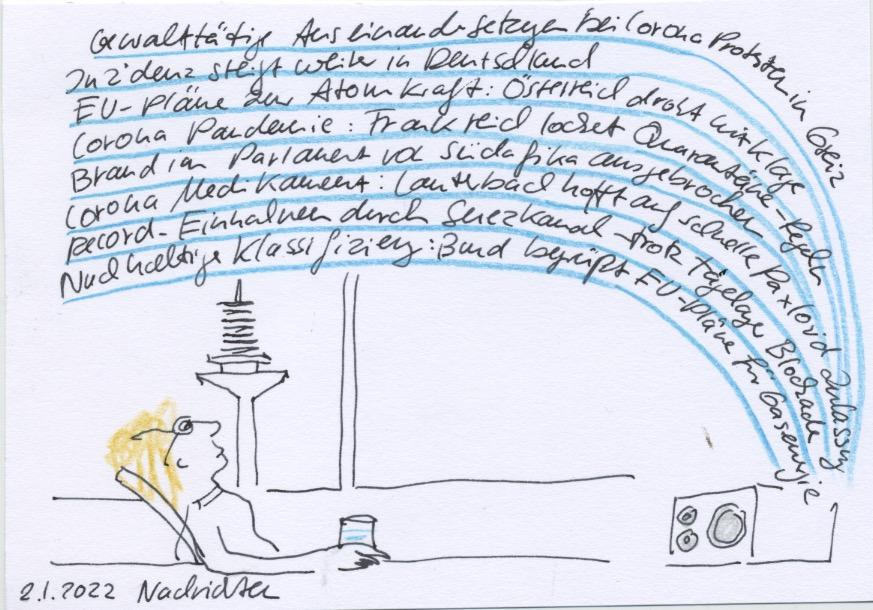 Gewalttätige Auseinandersetzungen bei Corona Protesten in Greiz
Inzidenz steigt weiter in Deutschland
EU-Pläne zur Atomkraft: Österreich droht mit Klage
Corona Pandemie: Frankreich lockert Quarantäne-Regeln
Brand im Parlament von Südafrika ausgebrochen
Corona Medikament: Lauterbach hofft auf schnelle Paxlovid Zulassung
Record-Einnahmen durch Suezkanal trotz tagelanger Blockade
Nachhaltige Klassifizierung: Bund begrüßt EU-Pläne für Gasenergie
2.1.2022 Nachrichten